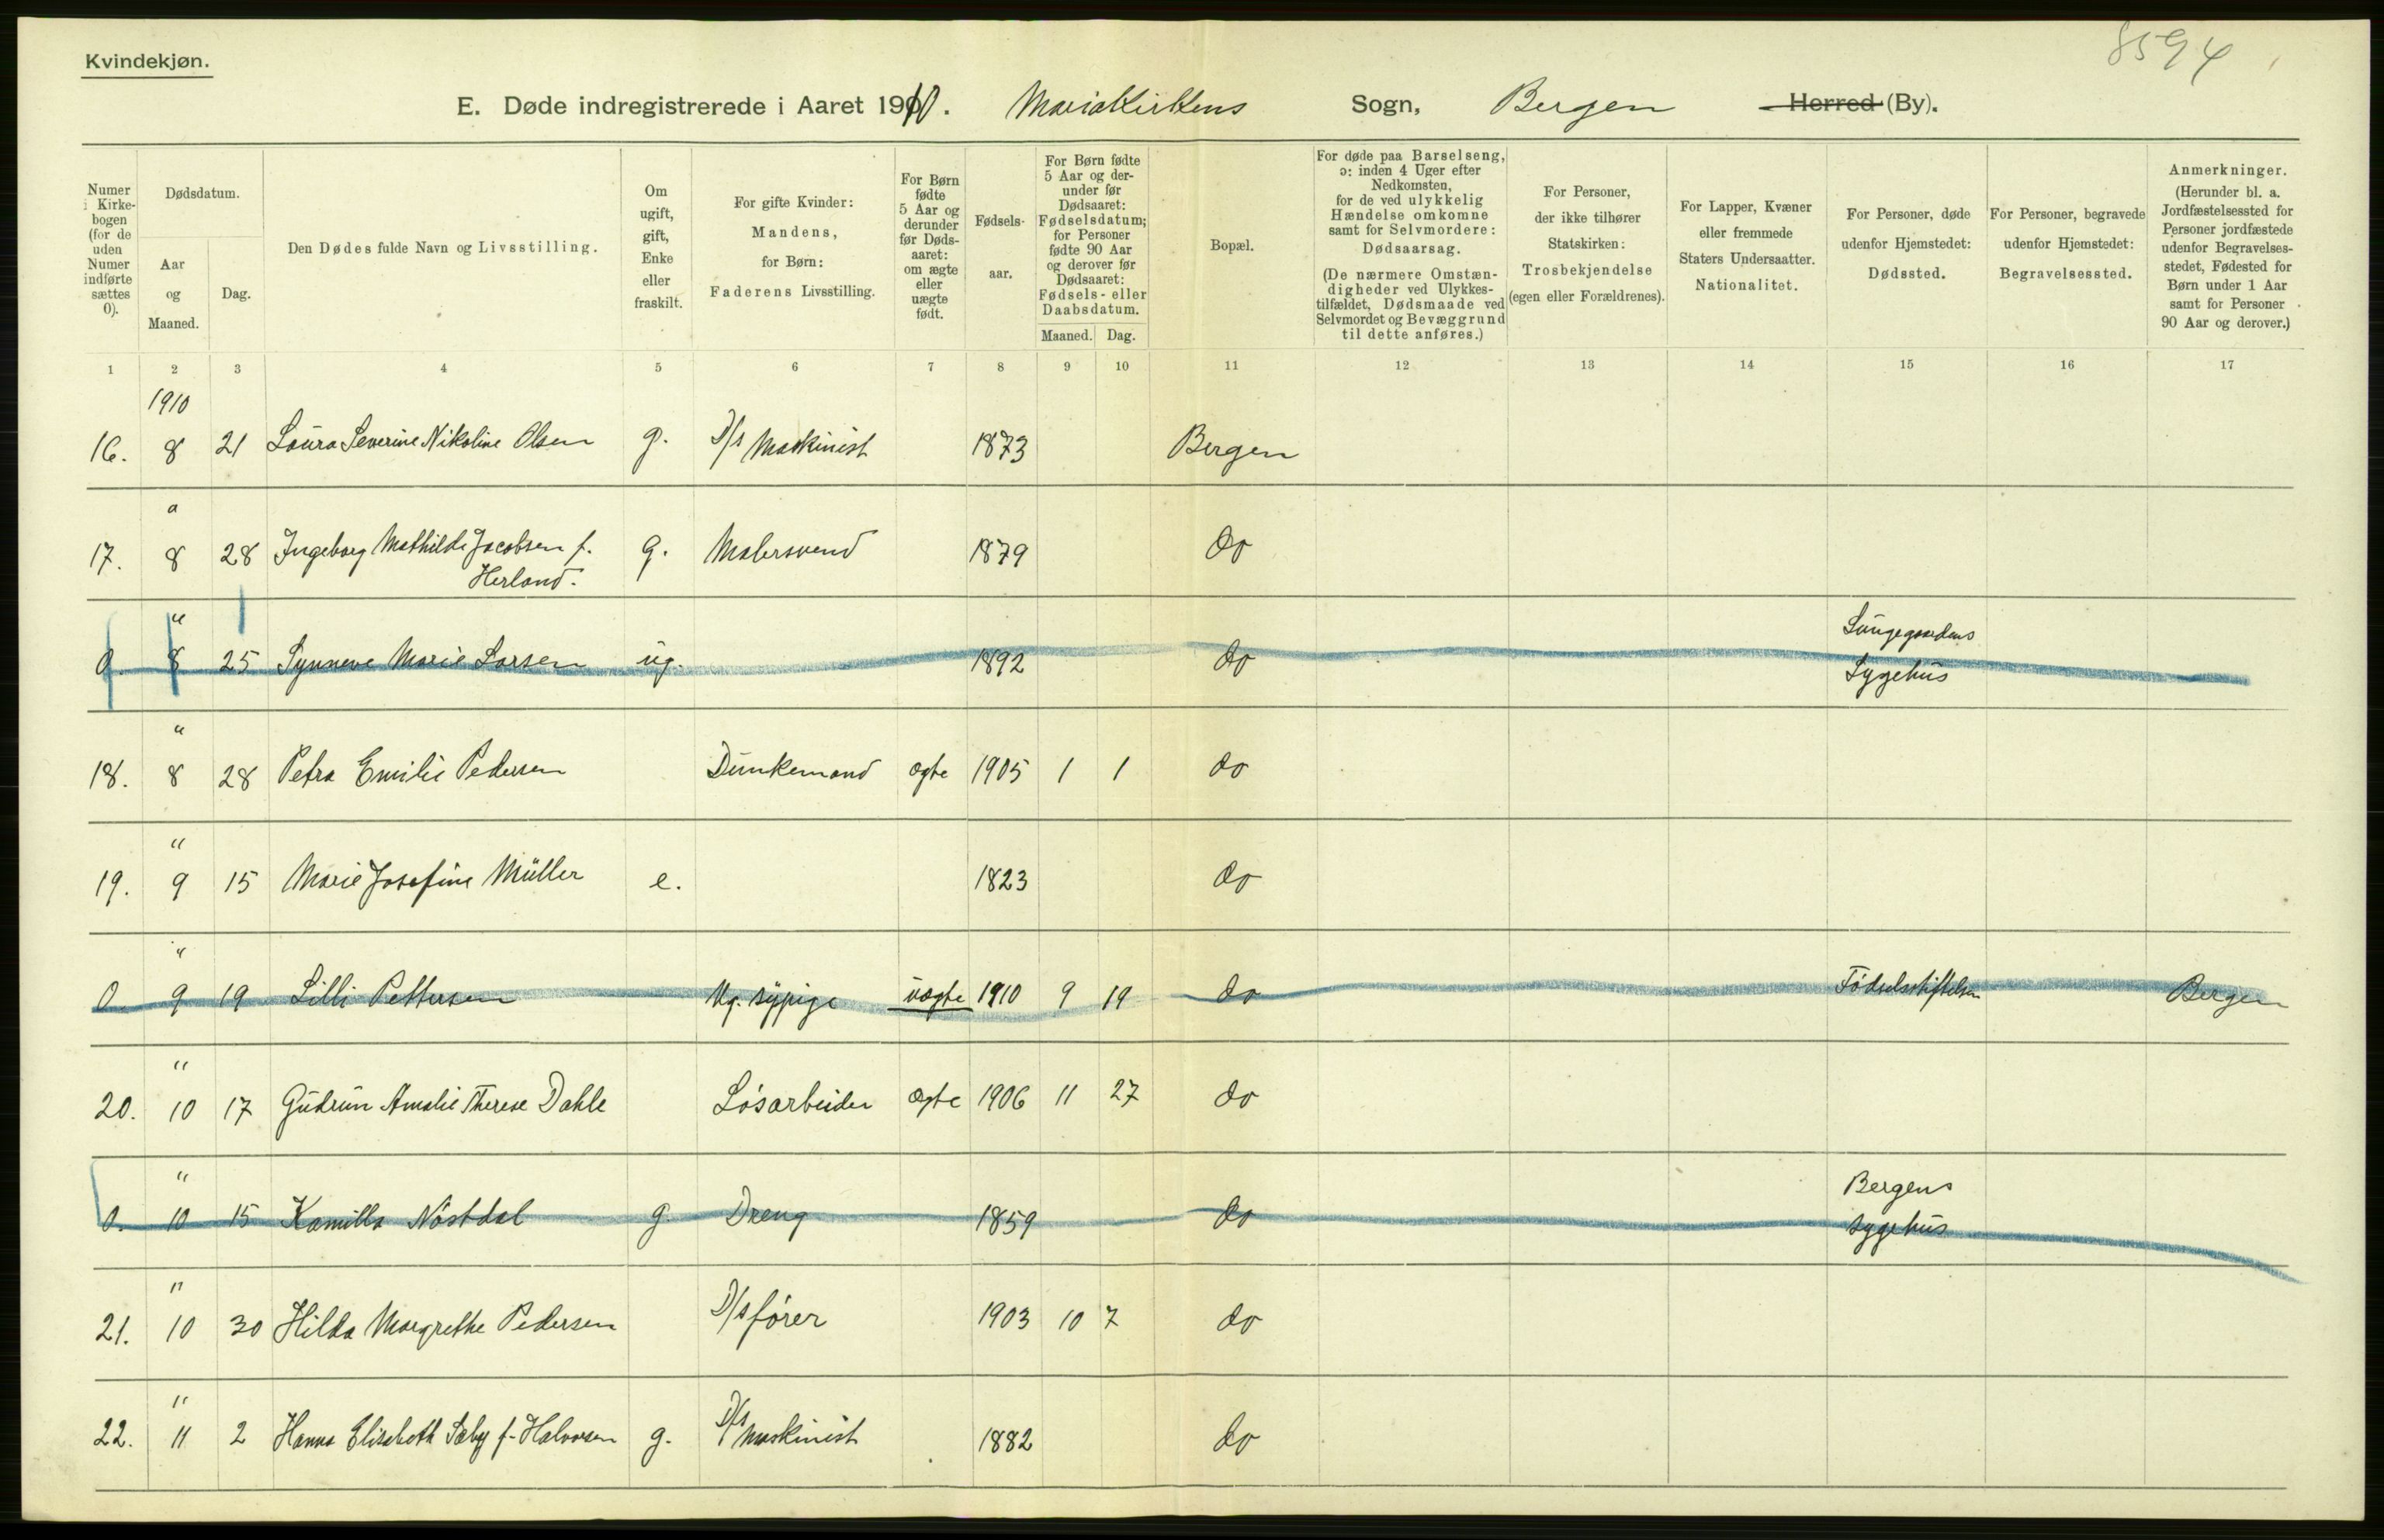 8594
Kvindekjøn.
E. Døde indregistrerede i Aaret 1910. Mariakirkens Sogn, Bergen Herred (By).
Numer i Kirkebogen (for de uden Numer indførte sættes 0).
Dødsdatum.
Aar og Maaned.
Dag.
Den Dødes fulde Navn og Livsstilling.
Om ugift, gift, Enke eller fraskilt.
For gifte Kvinder: Mandens, for Børn: Faderens Livsstilling.
For Børn fødte 5 Aar og derunder før Dødsaaret: om ægte eller uægte født.
Fødselsaar.
For Børn fødte 5 Aar og derunder før Dødsaaret: Fødselsdatum; for Personer fødte 90 Aar og derover før Dødsaaret: Fødsels- eller Daabsdatum.
Maaned. Dag.
Bopæl.
For døde paa Barselseng, ɔ: inden 4 Uger efter Nedkomsten, for de ved ulykkelig Hændelse omkomne samt for Selvmordere: Dødsaarsag.
(De nærmere Omstændigheder ved Ulykkestilfældet, Dødsmaade ved Selvmordet og Bevæggrund til dette anføres.)
For Personer, der ikke tilhører Statskirken: Trosbekjendelse (egen eller Forældrenes).
For Lapper, Kvæner eller fremmede Staters Undersaatter. Nationalitet.
For Personer, døde udenfor Hjemstedet: Dødssted.
For Personer, begravede udenfor Hjemstedet: Begravelsessted.
Anmerkninger. (Herunder bl. a. Jordfæstelsessted for Personer jordfæstede udenfor Begravelsesstedet, Fødested for Børn under 1 Aar samt for Personer 90 Aar og derover.)
1 2 3 4 5 6 7 8 9 10 11 12 13 14 15 16 17
1910
16. 8 21 Laura Severine Nikoline Olsen g. D/s Maskinist 1873 Bergen
"
17. 8 28 Ingeborg Mathilde Jacobsen f. Herland. g. Malersvend 1879 do
"
0. 8 25 Synneve Marie Larsen ug. 1892 do Lungegaardens Sygehus
"
18. 8 28 Petra Emilie Pedersen Dunkemand ægte 1905 1 1 do
"
19. 9 15 Marie Josefine Müller e. 1823 do
"
0. 9 19 Lilli Pettersen Ug. sypige uægte 1910 9 19 do Fødselsstiftelsen Bergen
"
20. 10 17 Gudrun Amalie Therese Dahle Løsarbeider ægte 1906 11 27 do
"
0. 10 15 Kamilla Nøstdal g. Dreng 1859 do Bergens sygehus
"
21. 10 30 Hilda Margrethe Pedersen D/s fører 1903 10 7 do
"
22. 11 2 Hanna Elisabeth Sæby f. Halvorsen g. D/s Maskinist 1882 do